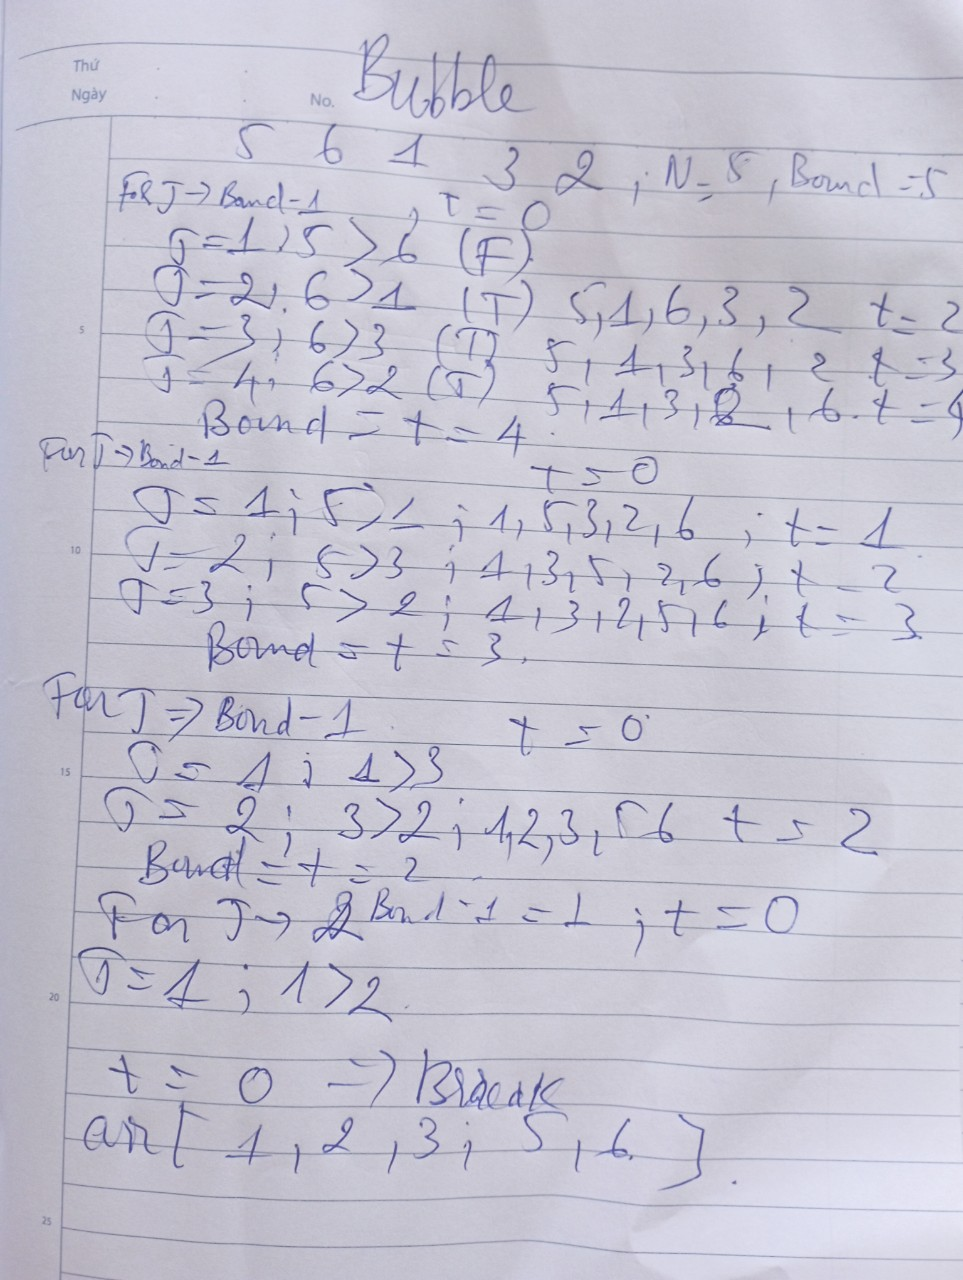 Thứ
Ngày
No.
Bubble
5 6 1 3 2 ; N = 5, Bound = 5
For J → Bound-1 , t = 0
J = 1; 5 > 6 (F)
J = 2; 6 > 1 (T) 5, 1, 6, 3, 2 t = 2
5
J = 3; 6 > 3 (T) 5, 1, 3, 6, 2 t = 3
J = 4; 6 > 2 (T) 5, 1, 3, 2, 6. t = 4
Bound = t = 4.
For J → Bond-1 t = 0
J = 1; 5 > 1; 1, 5, 3, 2, 6; t = 1
10
J = 2; 5 > 3; 1, 3, 5, 2, 6; t = 2
J = 3; 5 > 2; 1, 3, 2, 5, 6; t = 3
Bound = t = 3.
For J ⇒ Bond-1 t = 0
15
J = 1; 1 > 3
J = 2; 3 > 2; 1, 2, 3, 5 6 t = 2
Bound = t = 2
For J → Bond-1 = 1; t = 0
J = 1; 1 > 2.
20
t = 0 ⇒ Breack
arr[ 1, 2, 3; 5, 6. ].
25